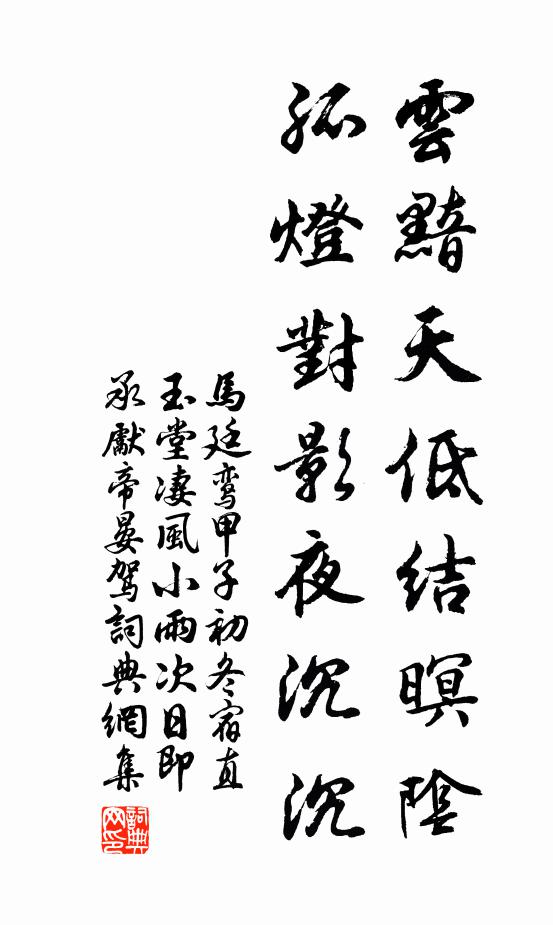 雲黯天低結暝陰
孤燈對影夜沉沉
馬廷鸞甲子初冬宿直
玉堂凄風小雨次日即
承獻帝晏駕詞典網集
詞典网印